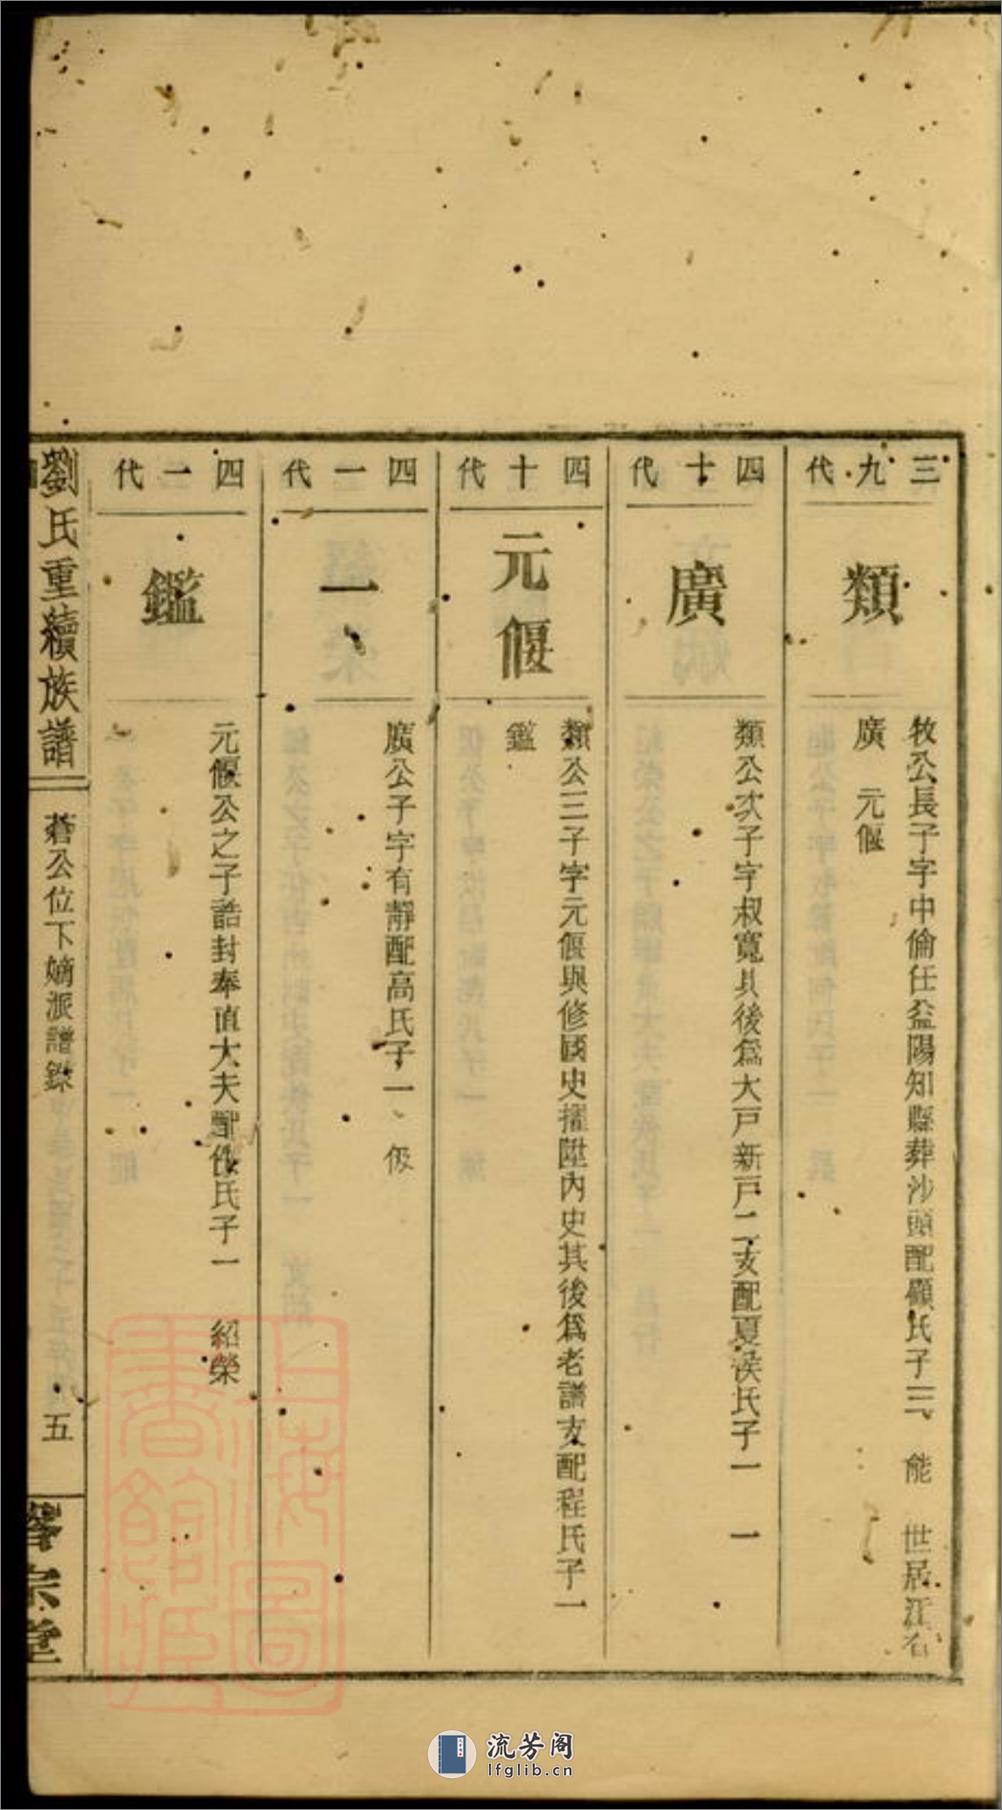 三九代
類
牧公長子字中倫任益陽知縣葬沙頭配顧氏子三 能 世居江右
廣 元偃
四十代
廣
類公次子字叔寬其後爲大戸新戸二支配夏侯氏子一 一
四十代
元偃
類公三子字元偃與修國史擢陞內史其後爲老譜支配程氏子一
鑑
四一代
一
廣公子字有靜配高氏子一 伋
四一代
鑑
元偃公之子誥封奉直大夫配仇氏子一 紹榮
劉氏重續族譜
蒼公位下嫡派譜錄
五
宗堂
上海圖書館藏
流芳阁
lfglib.cn